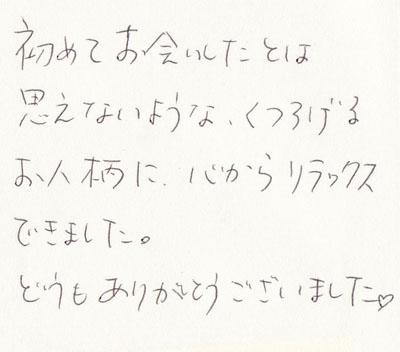 初めてお会いしたとは
思えないような、くつろげる
お人柄に、心からリラックス
できました。
どうもありがとうございました♡